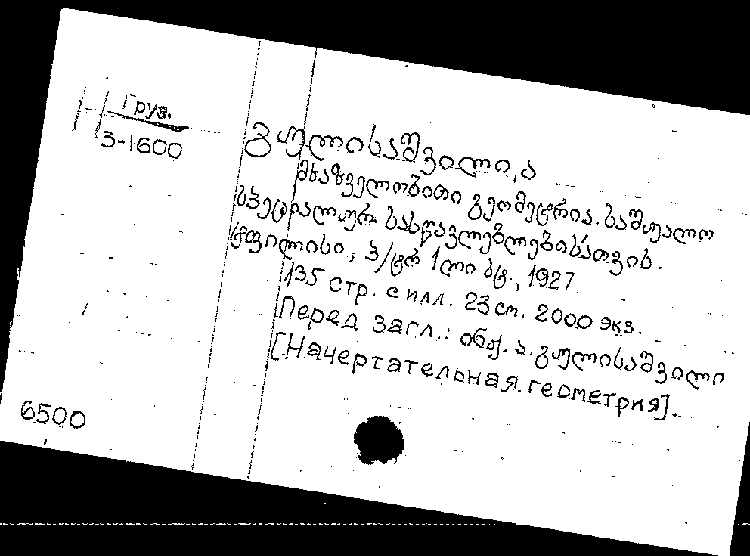 Н Груз.
3-1600
გულისაშვილი, ა
მხაზველობითი გეომეტრია. საშუალო
სპეციალურ სასწავლებლებისათვის.
ტფილისი, პ/ტრ 1ლი სტ., 1927
135 стр. с илл. 23 см. 2000 экз.
Перед загл.: ინჟ. ა. გულისაშვილი
[Начертательная геометрия].
6500